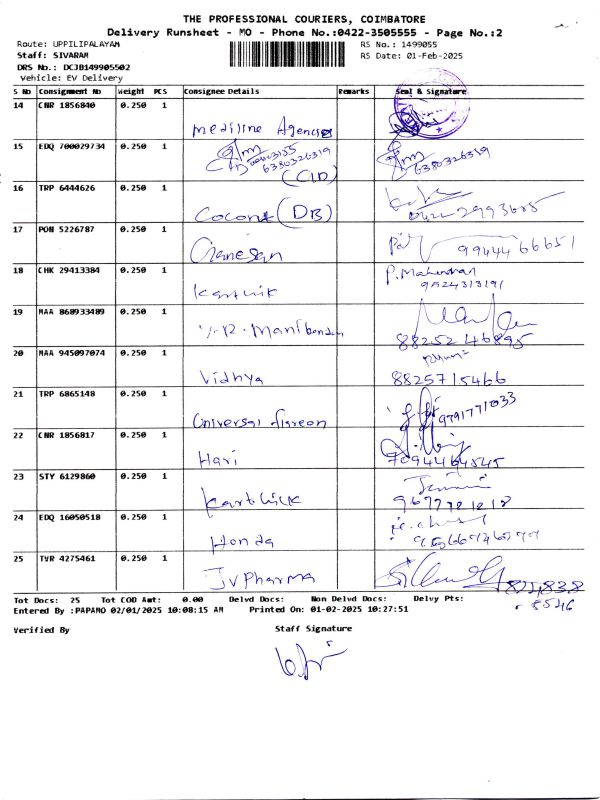 THE PROFESSIONAL COURIERS, COIMBATORE
Delivery Runsheet - MO - Phone No.:0422-3505555 - Page No.:2
Route: UPPILIPALAYAM RS No.: 1499055
Staff: SIVARAM RS Date: 01-Feb-2025
DRS No.: DCJB149905502
Vehicle: EV Delivery
S No Consignment No Weight PCS Consignee Details Remarks Seal & Signature
14 CNR 1856840 0.250 1
Mediline Agencies
15 EDQ 700029734 0.250 1
6380326319 6380326319
(CLD)
16 TRP 6444626 0.250 1
Coconut (DB)
17 PON 5226787 0.250 1
Ganesan 99444 66651
18 CHK 29413384 0.250 1 P. Mahendran
Karthik 9524313191
19 MAA 868933489 0.250 1
Manibandan 88252 46895
20 MAA 945097074 0.250 1
Vidhya 8825715466
21 TRP 6865148 0.250 1 9791771033
Universal
22 CNR 1856817 0.250 1
Hari 7094464545
23 STY 6129860 0.250 1
Karthick 9677721218
24 EDQ 16050518 0.250 1
Honda
25 TVR 4275461 0.250 1
JV Pharma
Tot Docs: 25 Tot COD Amt: 0.00 Delvd Docs: Non Delvd Docs: Delvy Pts:
8546
Entered By :PAPAMO 02/01/2025 10:08:15 AM Printed On: 01-02-2025 10:27:51
Verified By Staff Signature